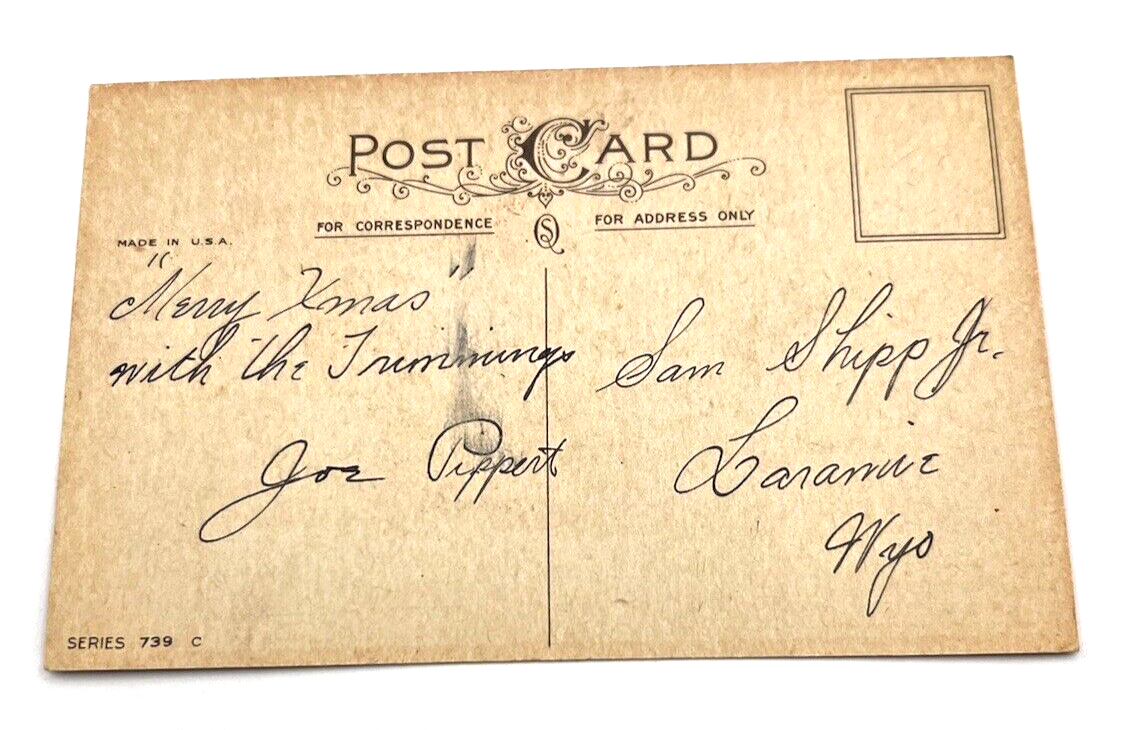 POST CARD
FOR CORRESPONDENCE
FOR ADDRESS ONLY
MADE IN U.S.A.
"Merry Xmas"
with the Trimmings
Joe Pippert
Sam Shipp Jr.
Laramie
Wyo
SERIES 739 C